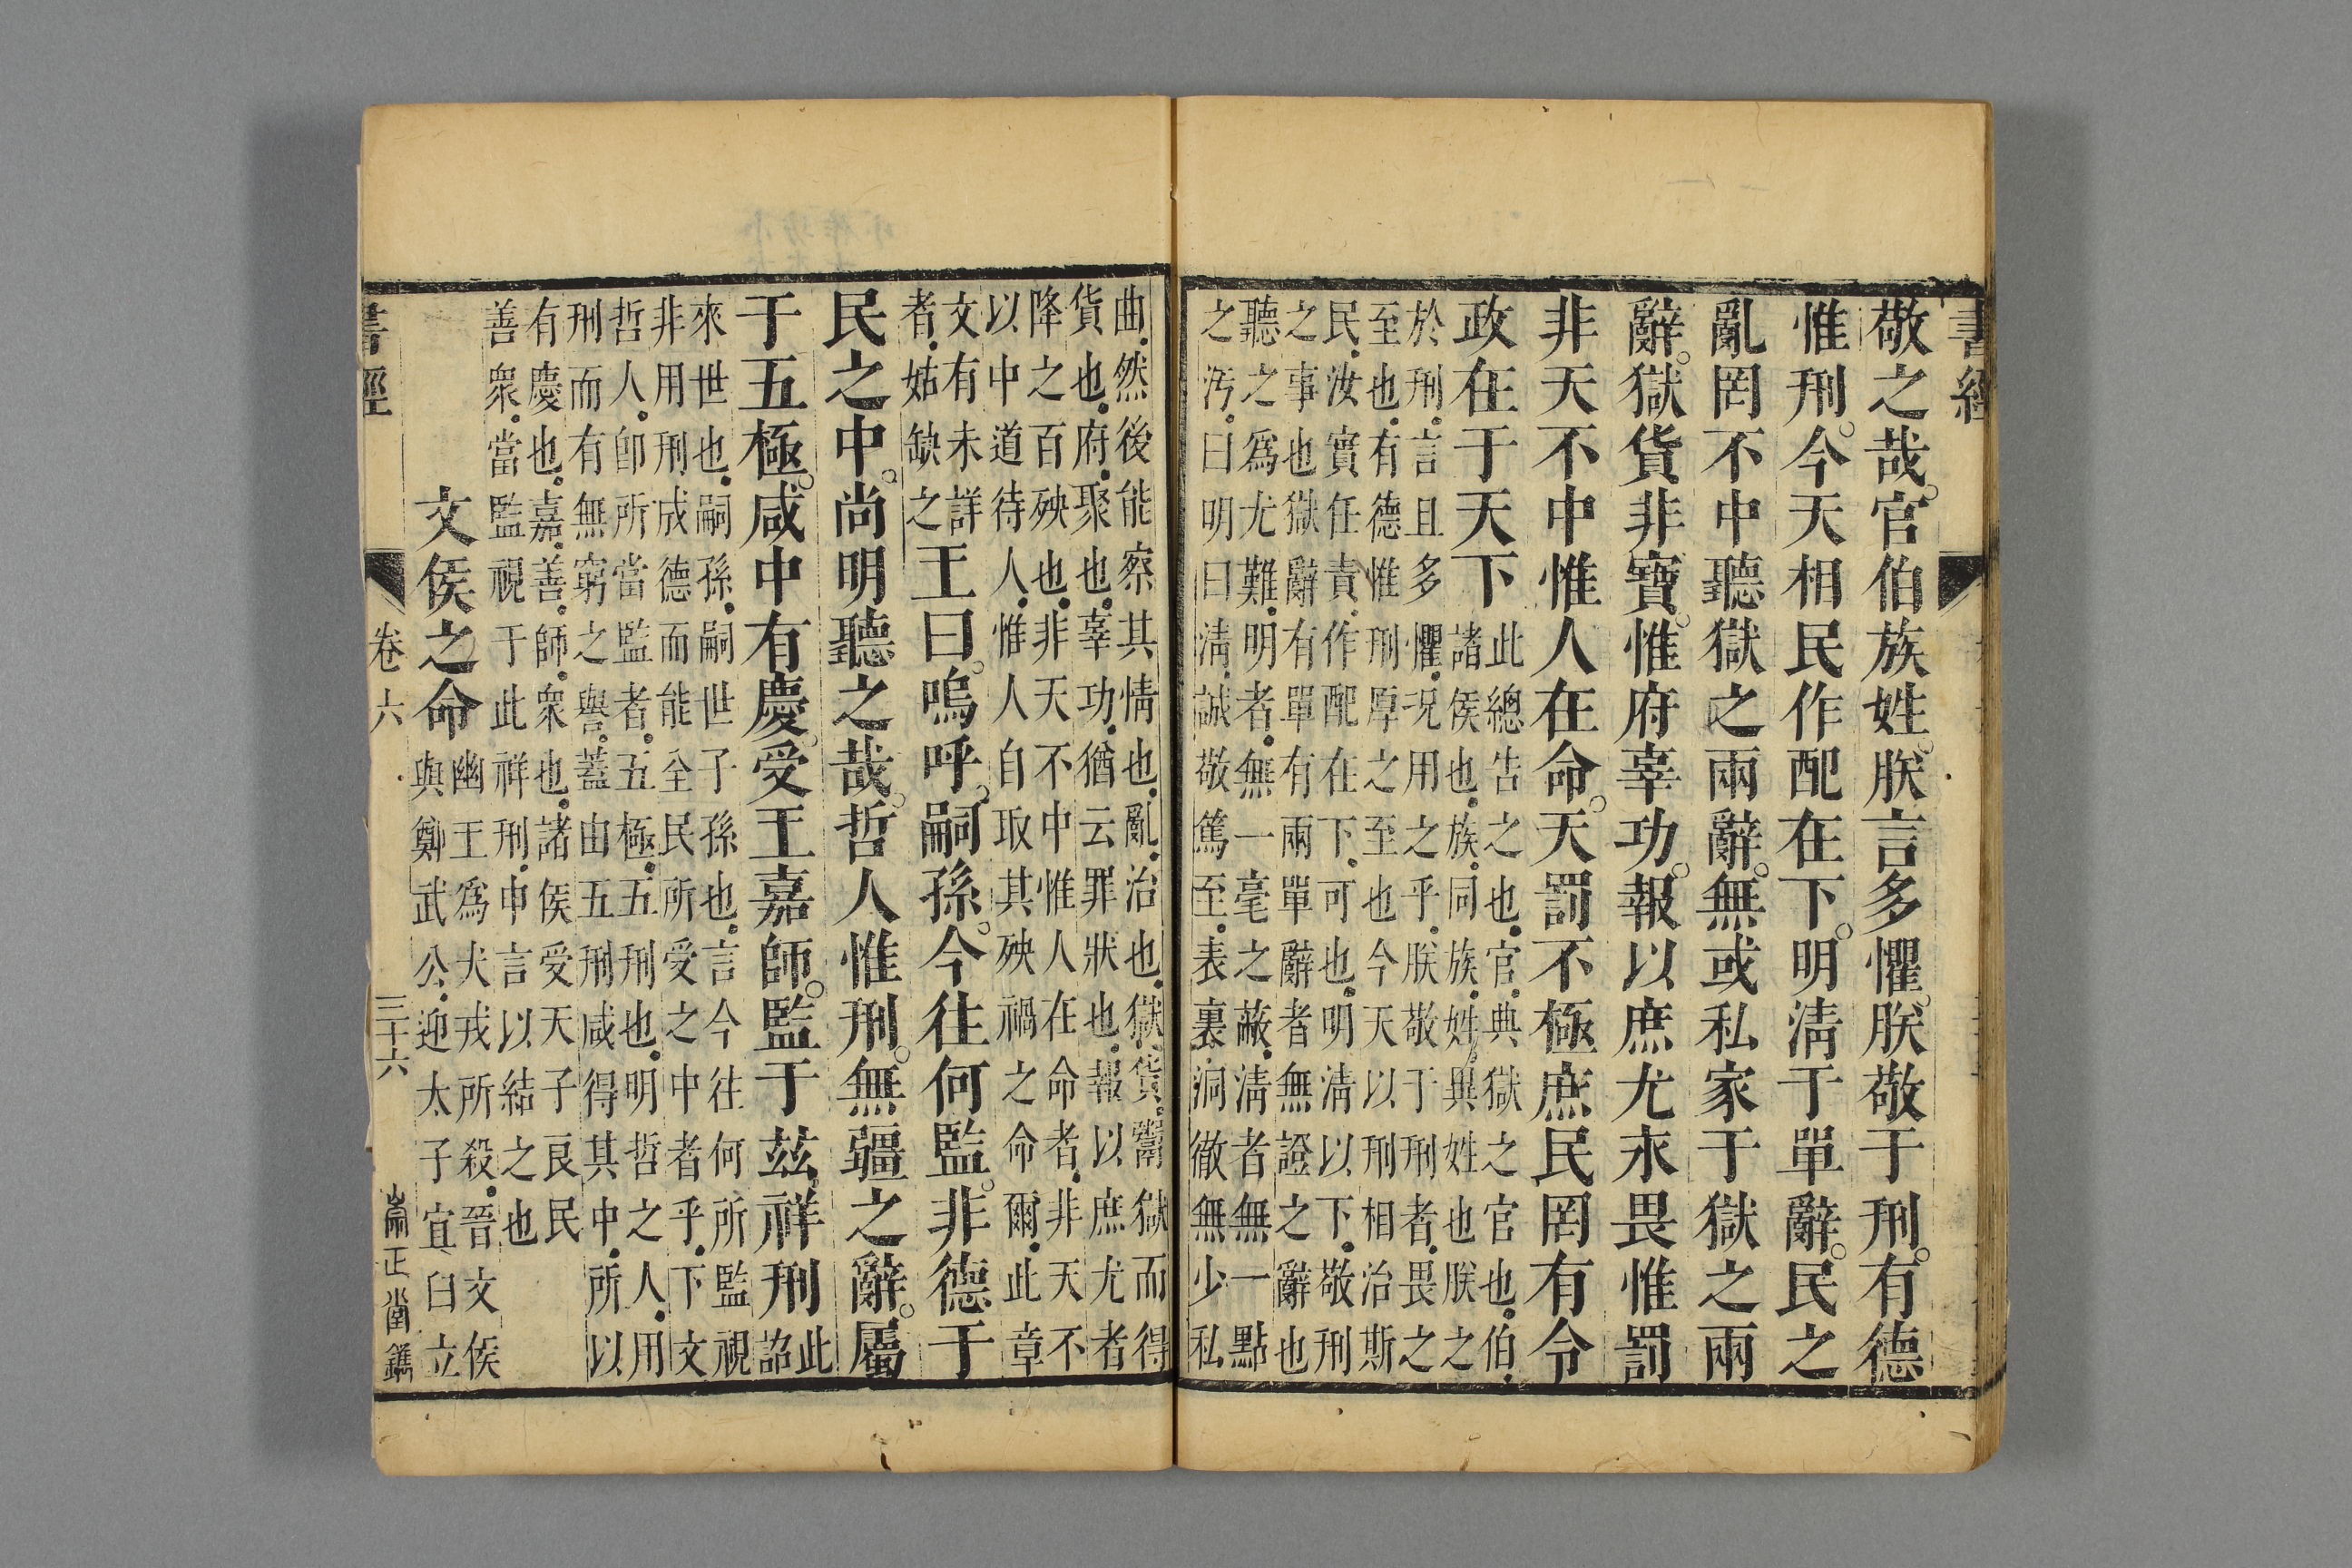 書經
敬之哉。官伯族姓。朕言多懼。朕敬于刑。有德
惟刑。今天相民作配在下。明淸于單辭。民之
亂罔不中聽獄之兩辭。無或私家于獄之兩
辭。獄貨非寶。惟府辜功。報以庶尤永畏惟罰
非天不中惟人在命。天罰不極庶民罔有令
政在于天下
此總告之也。官。典獄之官也。伯。
諸侯也。族。同族。姓。異姓也朕之
於刑。言且多懼。況用之乎。朕敬于刑者。畏之
至也。有德惟刑厚之至也今天以刑相治斯
民。汝實任責。作配在下。可也。明淸以下。敬刑
之事也獄辭有單有兩單辭者無證之辭也
聽之爲尤難。明者。無一毫之蔽。淸者無一點
之汚。曰明曰淸。誠敬篤至。表裏洞徹無少私
曲。然後能察其情也。亂。治也。獄貨。鬻獄而得
貨也。府。聚也。辜功。猶云罪狀也。報以庶尤者
降之百殃也。非天不中惟人在命者。非天不
以中道待人。惟人自取其殃禍之命爾。此章
文有未詳
者。姑缺之
王曰。嗚呼。嗣孫。今往何監。非德于
民之中。尚明聽之哉。哲人惟刑。無疆之辭。屬
于五極。咸中有慶。受王嘉師。監于茲祥刑
此
詔
來世也。嗣孫。嗣世子孫也。言今往何所監視
非用刑成德而能全民所受之中者乎。下文
哲人。卽所當監者。五極。五刑也。明哲之人。用
刑而有無窮之譽。蓋由五刑咸得其中。所以
有慶也。嘉。善。師。衆也。諸侯受天子良民
善衆。當監視于此祥刑。申言以結之也
文侯之命
幽王爲犬戎所殺。晉文侯
與鄭武公。迎太子宜臼立
書經
卷六
三十六
崇正堂鐫